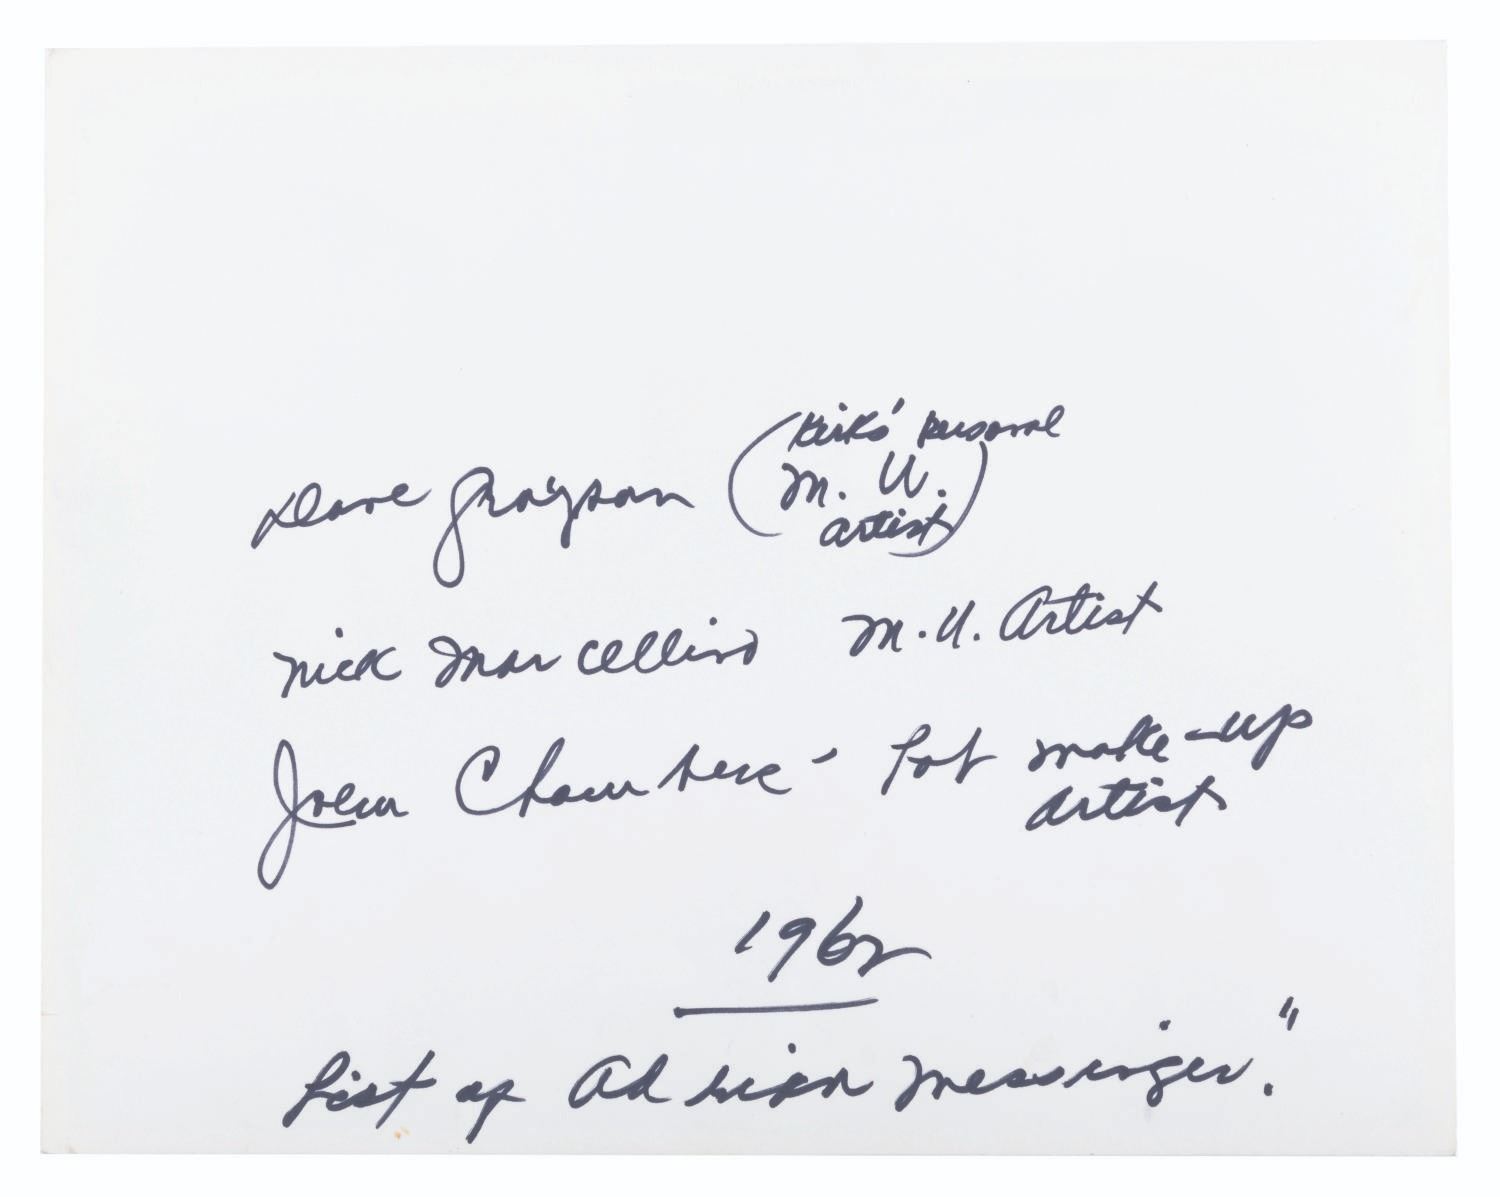 Dave Grayson (Kirk's personal
M. U.
artist)
Nick Marcellino M.U. Artist
John Chambers - Lab make-up
artist
1962
List of Adrian Messenger."